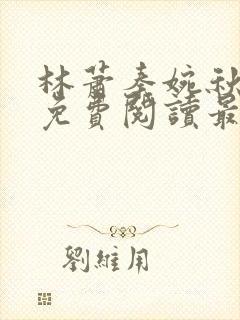 林蕭秦婉秋
免費閱讀最
劉維用